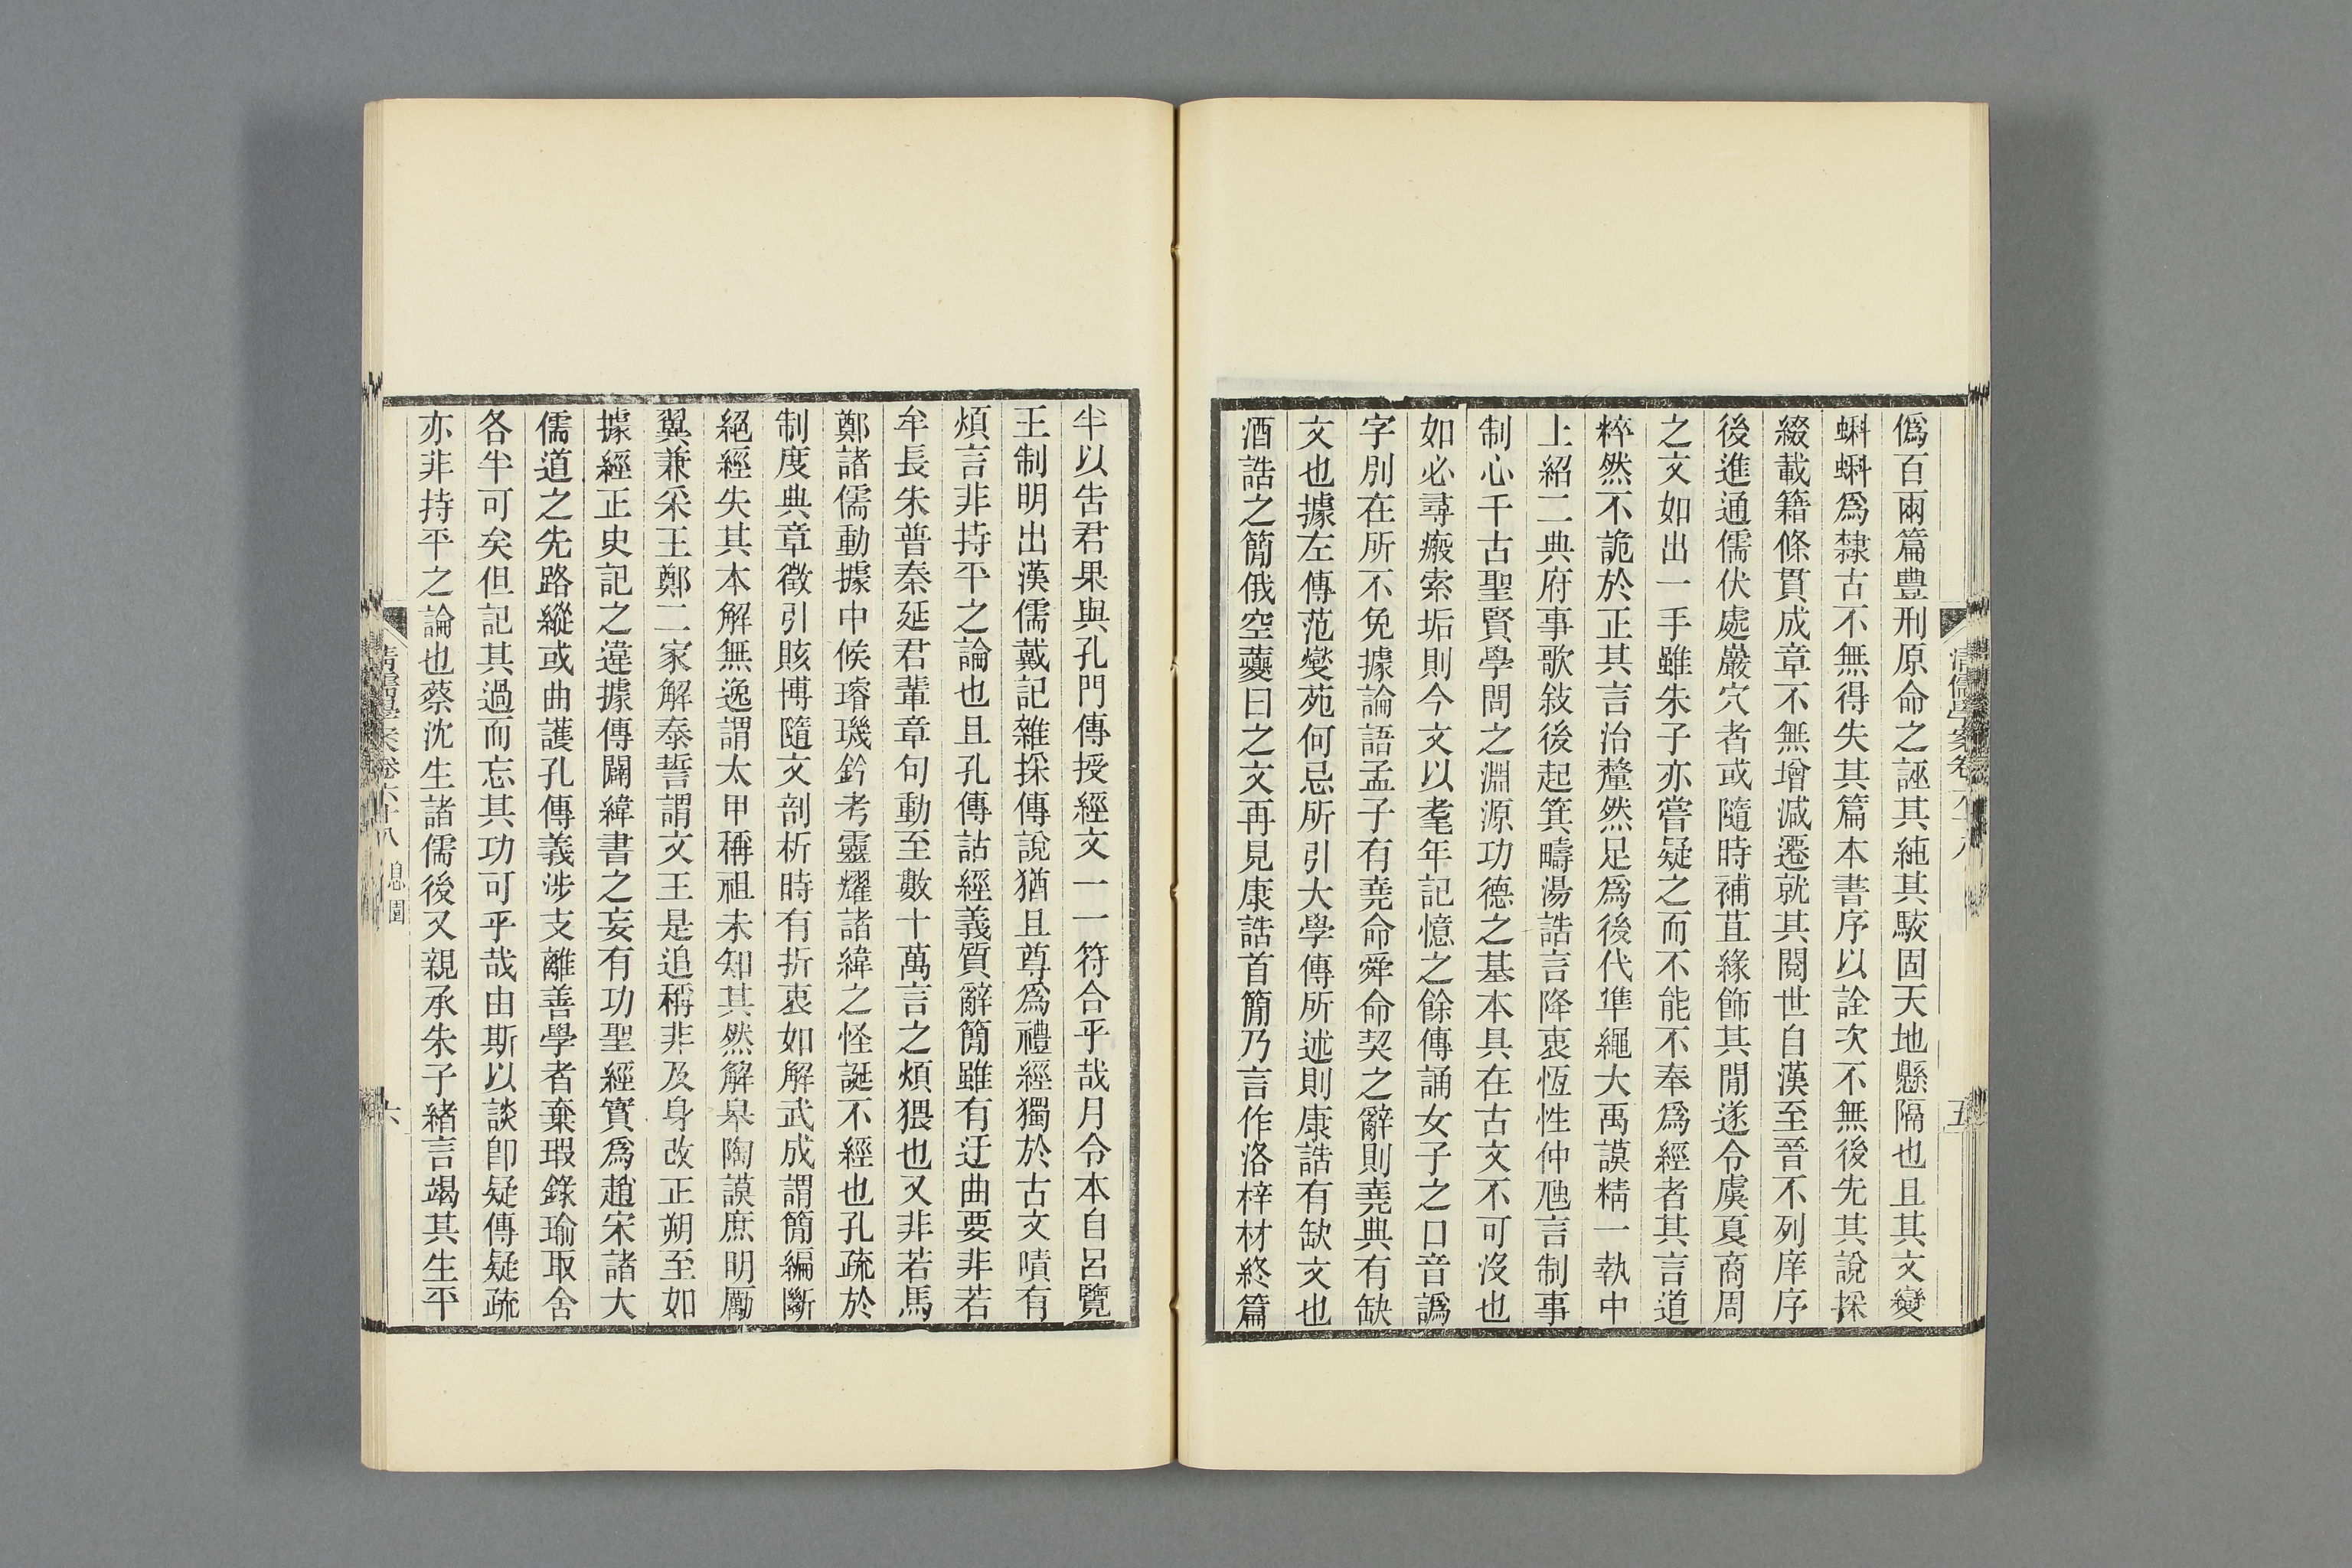 僞百兩篇豊刑原命之誣其純其駮固天地懸隔也且其文變
蝌蝌爲隸古不無得失其篇本書序以詮次不無後先其說採
綴載籍條貫成章不無增減遷就其閱世自漢至晉不列庠序
後進通儒伏處巖穴者或隨時補苴緣飾其閒遂令虞夏商周
之文如出一手雖朱子亦嘗疑之而不能不奉爲經者其言道
粹然不詭於正其言治釐然足爲後代準繩大禹謨精一執中
上紹二典府事歌敍後起箕疇湯誥言降衷恆性仲虺言制事
制心千古聖賢學問之淵源功德之基本具在古文不可沒也
如必尋瘢索垢則今文以耄年記憶之餘傳誦女子之口音譌
字別在所不免據論語孟子有堯命舜命契之辭則堯典有缺
文也據左傳范燮苑何忌所引大學傳所述則康誥有缺文也
酒誥之簡俄空虁曰之文再見康誥首簡乃言作洛梓材終篇
清儒學案卷六十八
五
半以告君果與孔門傳授經文一一符合乎哉月令本自呂覽
王制明出漢儒戴記雜採傳說猶且尊爲禮經獨於古文嘖有
煩言非持平之論也且孔傳詁經義質辭簡雖有迂曲要非若
牟長朱普秦延君輩章句動至數十萬言之煩猥也又非若馬
鄭諸儒動據中候璿璣鈐考靈耀諸緯之怪誕不經也孔疏於
制度典章徵引賅博隨文剖析時有折衷如解武成謂簡編斷
絕經失其本解無逸謂太甲稱祖未知其然解皋陶謨庶明厲
翼兼采王鄭二家解泰誓謂文王是追稱非及身改正朔至如
據經正史記之違據傳闢緯書之妄有功聖經實爲趙宋諸大
儒道之先路縱或曲護孔傳義涉支離善學者棄瑕錄瑜取舍
各半可矣但記其過而忘其功可乎哉由斯以談卽疑傳疑疏
亦非持平之論也蔡沈生諸儒後又親承朱子緒言竭其生平
清儒學案卷六十八 息園
六